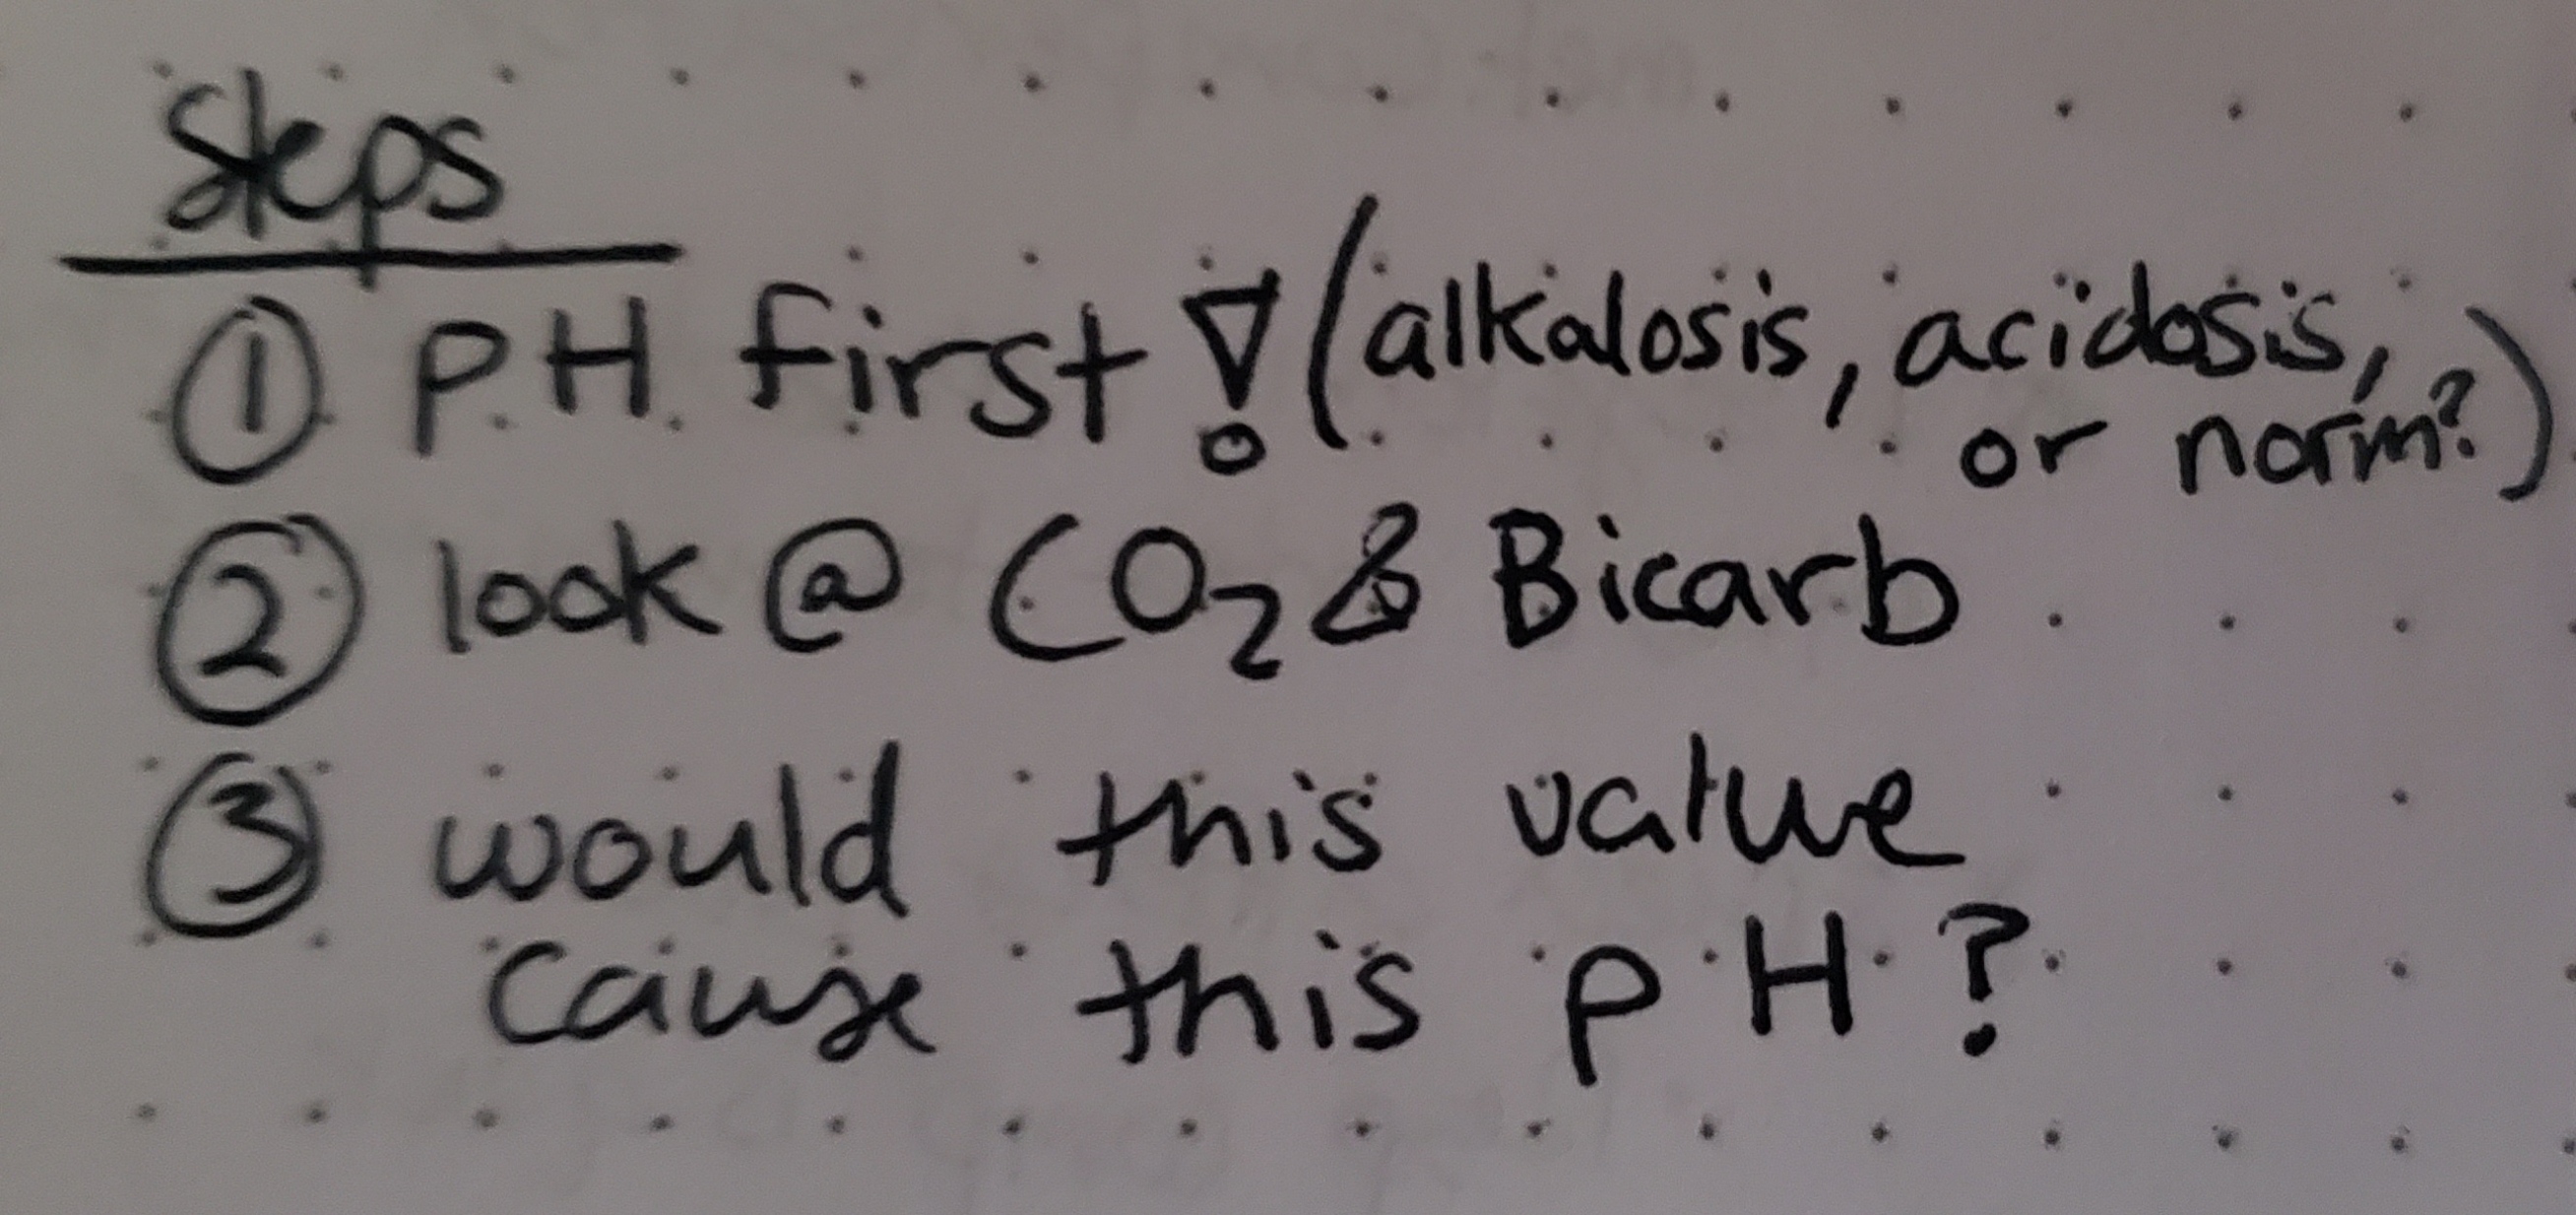 Steps
① pH first! (alkalosis, acidosis,
or norm?)
② look @ CO₂ & Bicarb
③ would this value
cause this pH?